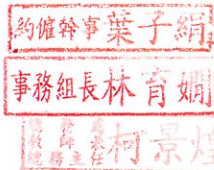 約僱幹事葉子絹
事務組長林育嫺
主任柯景煌